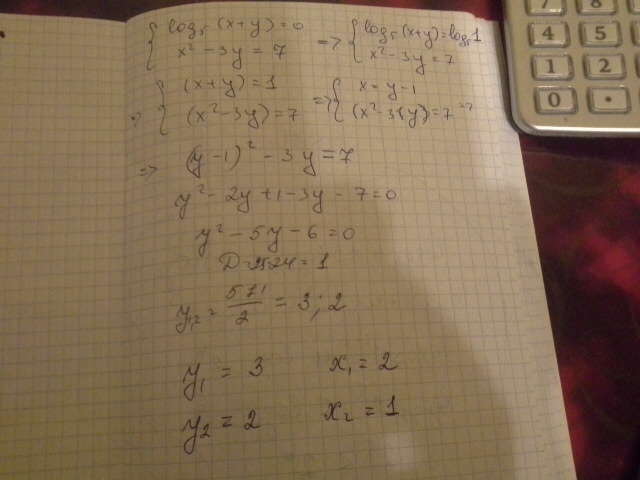 { log₅ (x+y) = 0
x² - 3y = 7
=> { log₅ (x+y) = log₅ 1
x² - 3y = 7
=> { (x+y) = 1
(x² - 3y) = 7
=> { x = y - 1
(x² - 3(y) = 7 =>
=> (y - 1)² - 3y = 7
y² - 2y + 1 - 3y - 7 = 0
y² - 5y - 6 = 0
D = 25-24 = 1
y₁,₂ = 5±1/2 = 3; 2
y₁ = 3 x₁ = 2
y₂ = 2 x₂ = 1
7 8
4 5
1 2
0 .